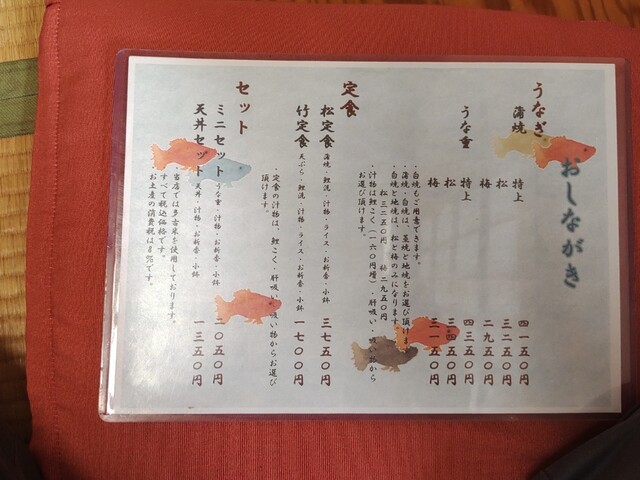 おしながき
うなぎ
蒲焼
特上 四一五〇円
松 三二五〇円
梅 二九五〇円
うな重
特上 四三五〇円
松 三四五〇円
梅 三一五〇円
・白焼もご用意できます。
・蒲焼・白焼は、蒸焼と地焼をお選び頂けます。
白焼と地焼は、松と梅のみになります。
松 三二五〇円 梅 二九五〇円
・汁物は鯉こく(一六〇円増)・肝吸い・吸い物から
お選び頂けます。
定食
松定食 蒲焼・鯉洗・汁物・ライス・お新香・小鉢 三七五〇円
竹定食 天ぷら・鯉洗・汁物・ライス・お新香・小鉢 一七〇〇円
・定食の汁物は、鯉こく・肝吸い・吸い物からお選び
頂けます。
セット
ミニセット うな重・汁物・お新香・小鉢 二〇五〇円
天丼セット 天丼・汁物・お新香・小鉢 一三五〇円
・当店では多古米を使用しております。
すべて税込価格です。
お土産の消費税は8%です。